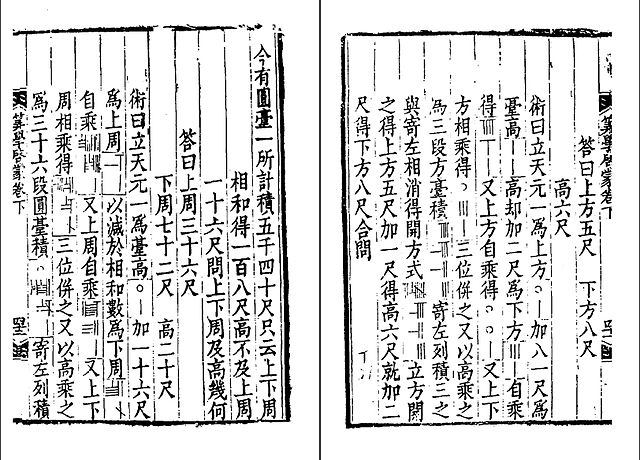 答曰上方五尺　下方八尺
高六尺
術曰立天元一為上方○｜加八一尺為
臺高　高却加二尺為下方　自乘
得　又上方自乘得○○｜又上下
方相乘得○　三位併之又以高乘之
為三段方臺積　寄左列積三之
與寄左相消得開方式　立方開
之得上方五尺加一尺得高六尺就加二
尺得下方八尺合問
算學啓蒙卷下
今有圓臺一所計積五千四十尺只云上下周
相和得一百八尺高不及上周
一十六尺問上下周及高幾何
答曰上周三十六尺
下周七十二尺　高二十尺
術曰立天元一為臺高○｜加一十六尺
為上周　以減於相和數為下周
自乘　又上周自乘　又上下
周相乘得　三位併之又以高乘之
為三十六段圓臺積○　寄左列積
算學啓蒙卷下